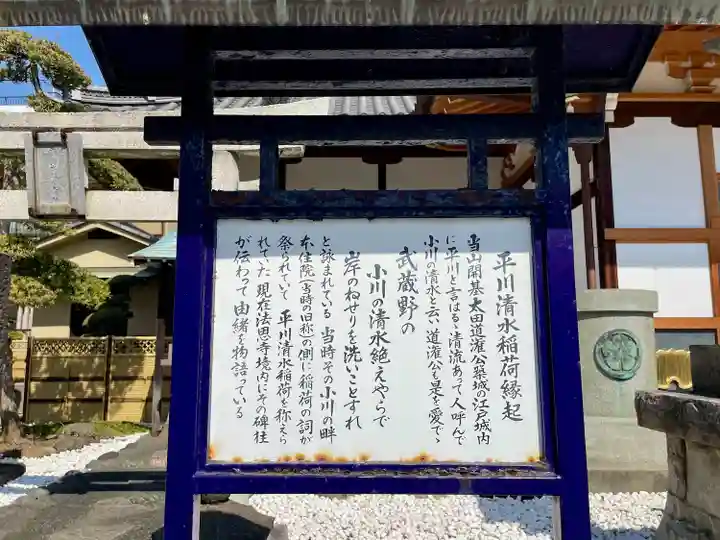 平川清水稲荷縁起
当山開基太田道灌公築城の江戸城内
に平川と言はるゝ清流あって人呼んで
小川の清水と云い道灌公も是を愛でゝ
武蔵野の
小川の清水絶えやらで
岸のねせりを洗いこそすれ
と詠まれている 当時その小川の畔
本住院(当時の旧称)の側に稲荷の詞が
祭られていて 平川清水稲荷を称えら
れていた 現在法恩寺境内にその碑柱
が伝わって由緒を物語っている